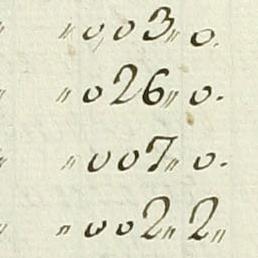 " „ 0,03„ 0.
" „ 026„ 0.
" „ 007„ 0.
" „ 002„ 2„